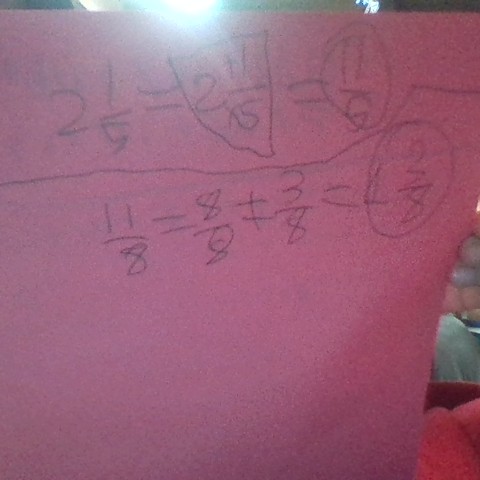 2 1/5 = 2 11/5 = 11/5
11/8 = 8/8 + 3/8 = 1 3/8